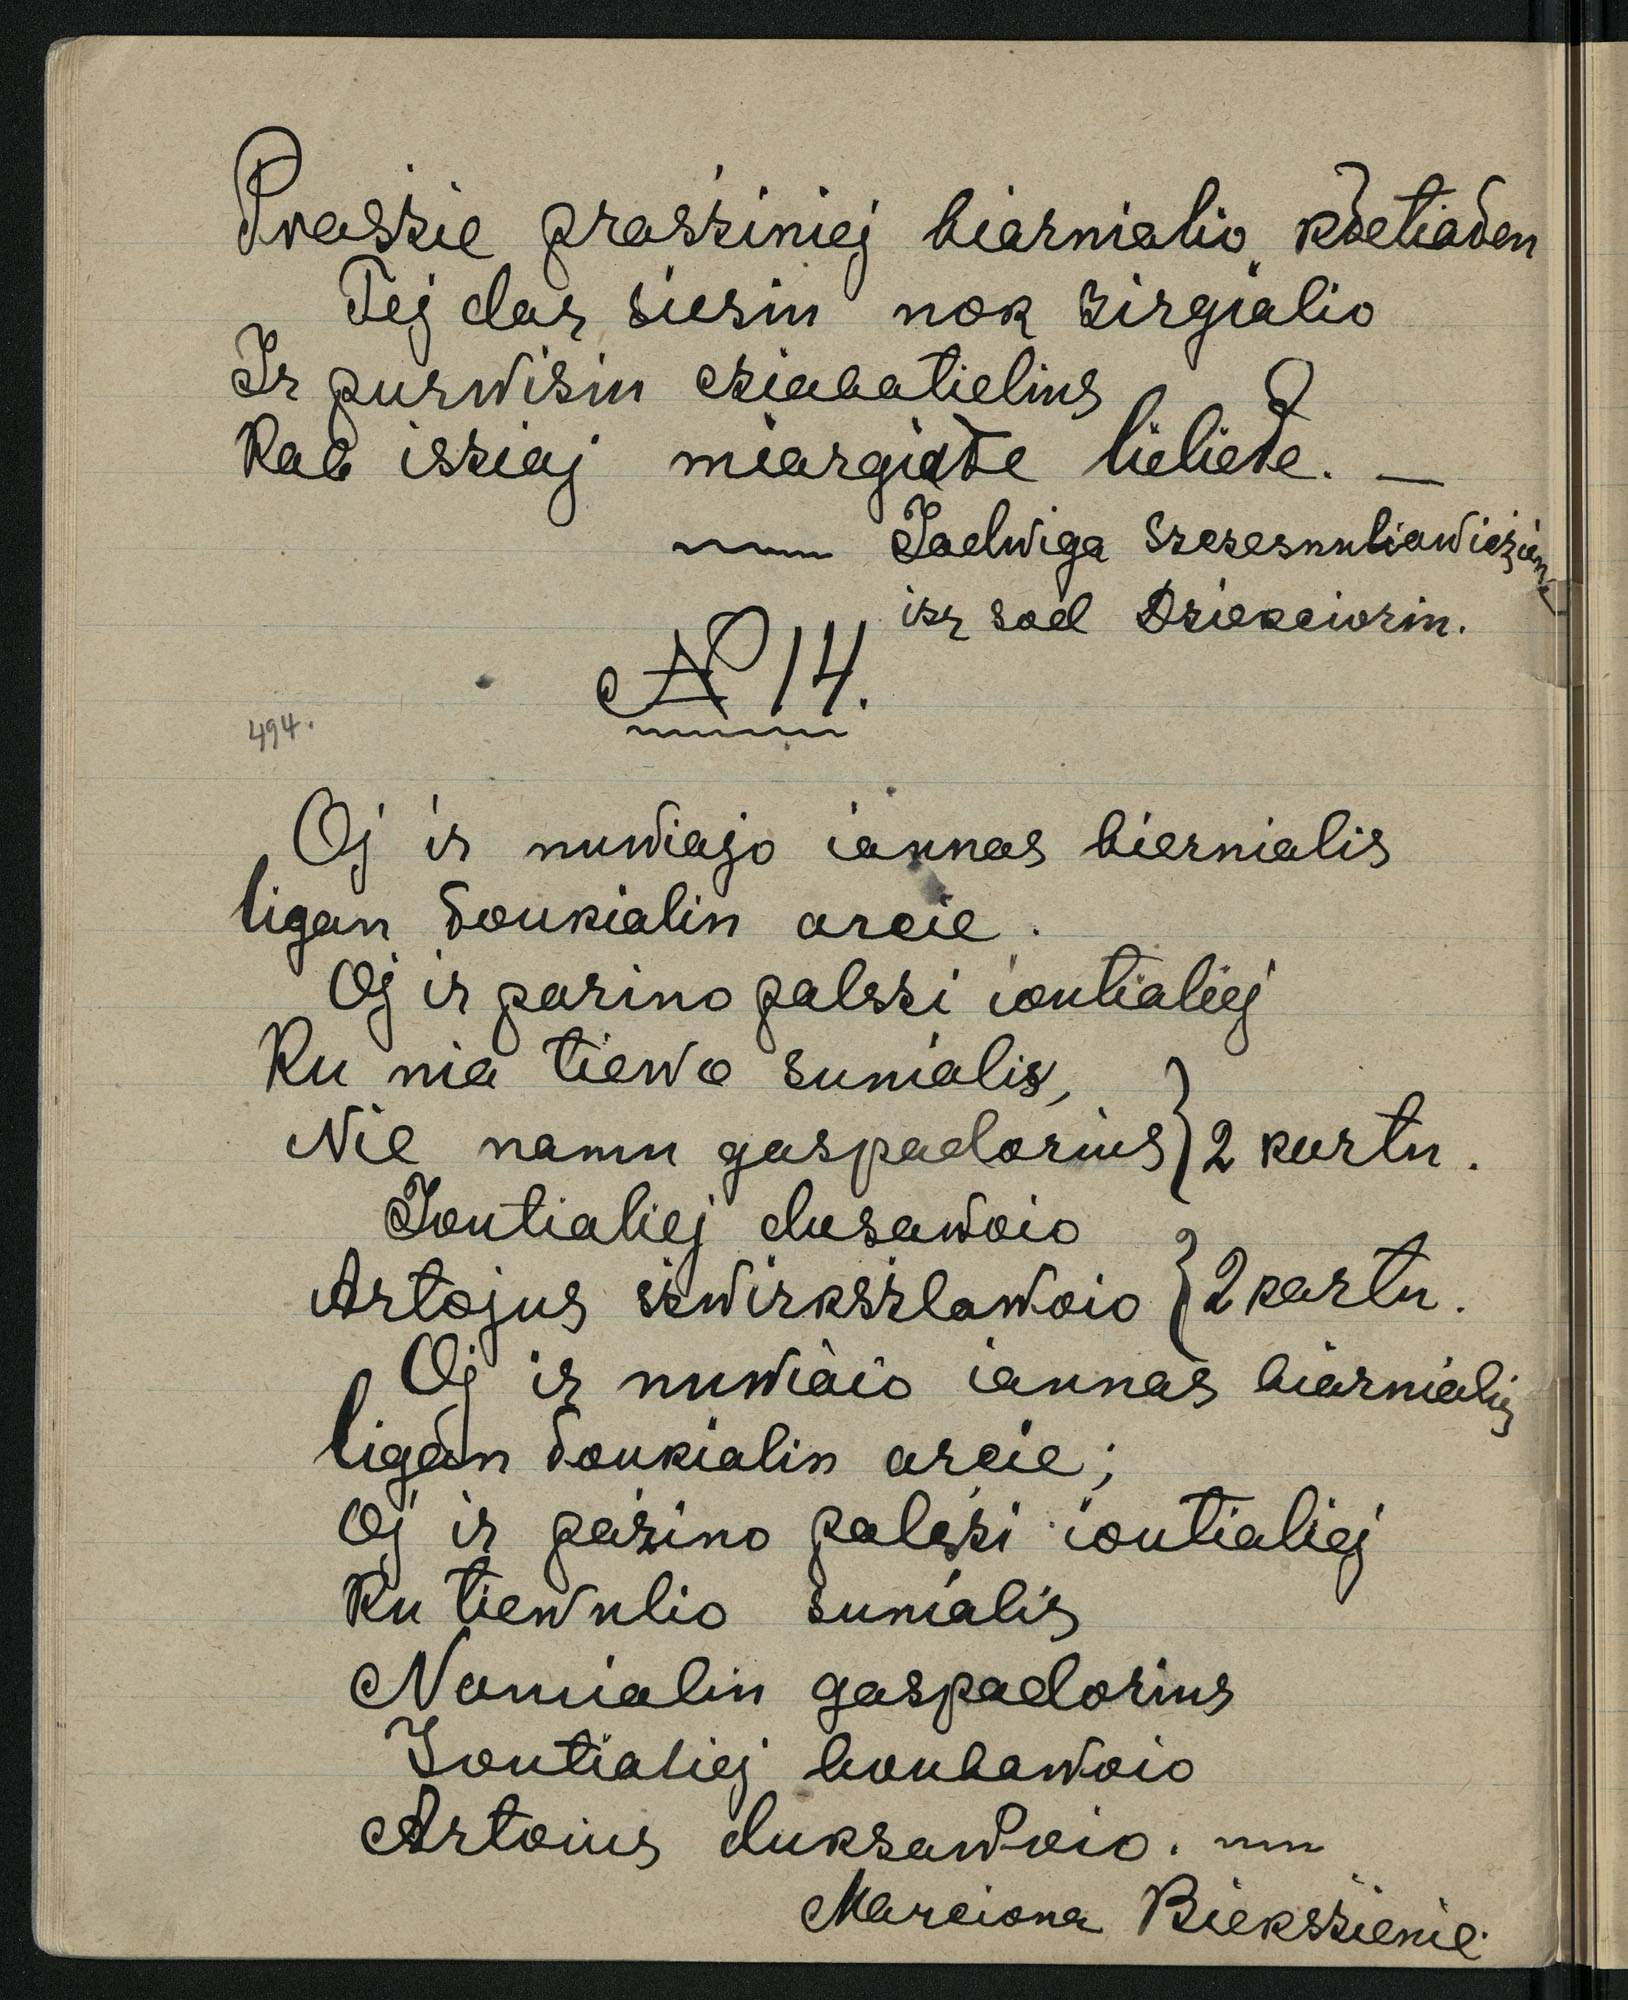 Praszie prasziniej biarnialio
Tej dar siesin nok zirgialio
Ir purwisin cziabatielius
Kab isziaj miargiałe lieliełe. —
Jadwiga Szczesnuliawiczien
isz sod Dziekciorin.
№ 14.
494.
Oj ir nuwiajo iaunas biernialis
ligan łoukialin arcie.
Oj ir parino palszi ioutialiej
Ku nia tiewo sunialis,
Nie namu gaspadorius } 2 kartu.
Joutialiej dusawoio
Artojus szwirkszlawoio } 2 kartu.
Oj ir nuwiaio iaunas biarnialis
ligan łoukialin arcie;
Oj ir pazino palszi ioutialiej
Ku tiewulio sunialis
Namialin gaspadorius
Joutialiej boubawoio
Artoius duksawoio.
Marciona Biekszienie.